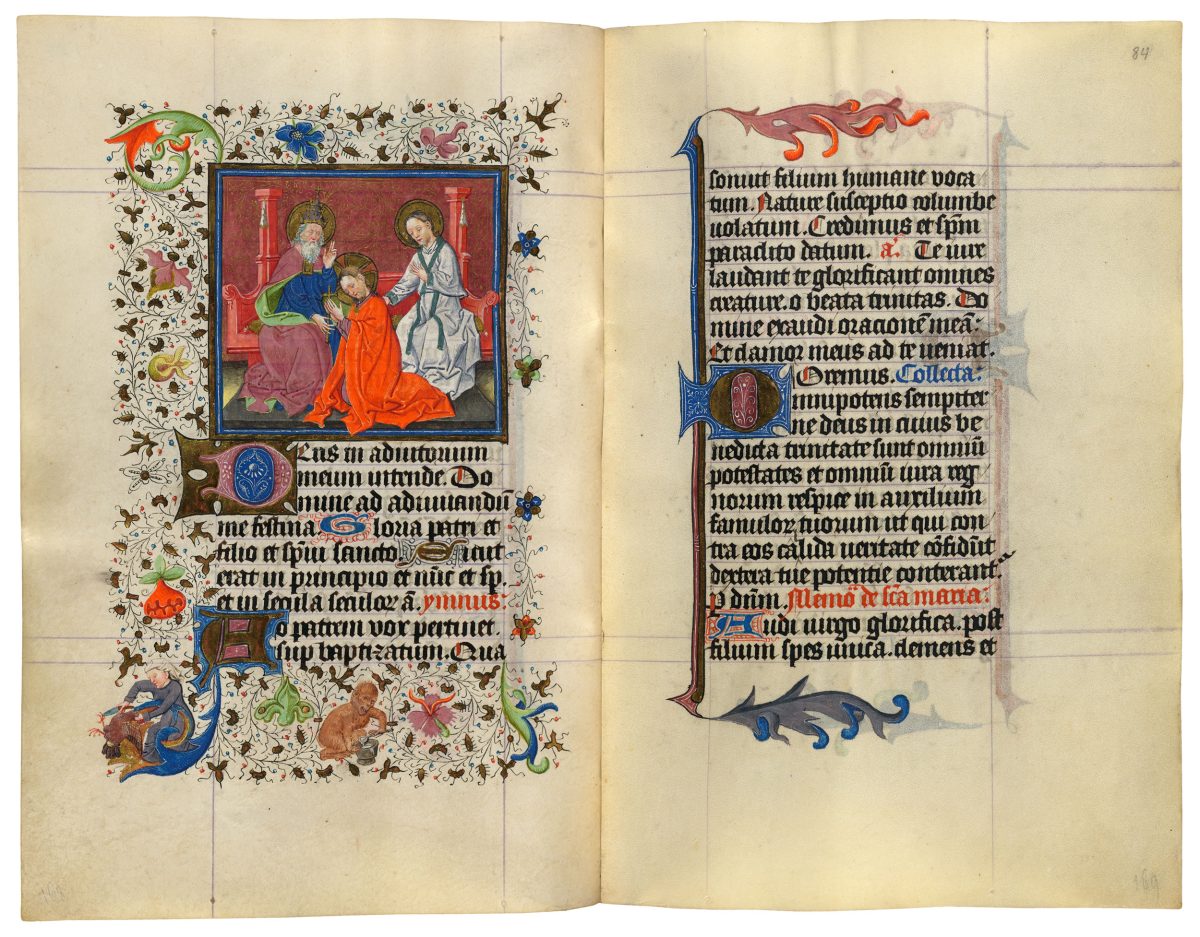 DEus in adiutorium
meum intende. Do
mine ad adiuuandū
me festina Gloria patri et
filio et sp̄ui sancto. Sicut
erat in principio et nūc et sp.
et in secula seculoꝝ ā. ymnus:
Ad patrem vox pertinet.
sup baptizatum. Qua
84
sonuit filium humane voca
tum. Nature susceptio columbe
uolatum. Credimus et sp̄m
paraclito datum. a. Te iure
laudant te glorificant omnes
creature. o beata trinitas. Do
mine exaudi orationē meā:
Et clamor meus ad te ueniat.
Oremus. Collecta:
Omnipotens sempiter
ne deus in cuius be
nedicta trinitate sunt omniū
potestates et omniū iura reg
norum respice in auxilium
famuloꝝ tuorum ut qui con
tra eos calida ueritate cōfidūt
dextera tue potentie conterant.
p dūm. Memo de sc̄a maria:
Audi uirgo glorifica. post
filium spes unica. clemens et
169